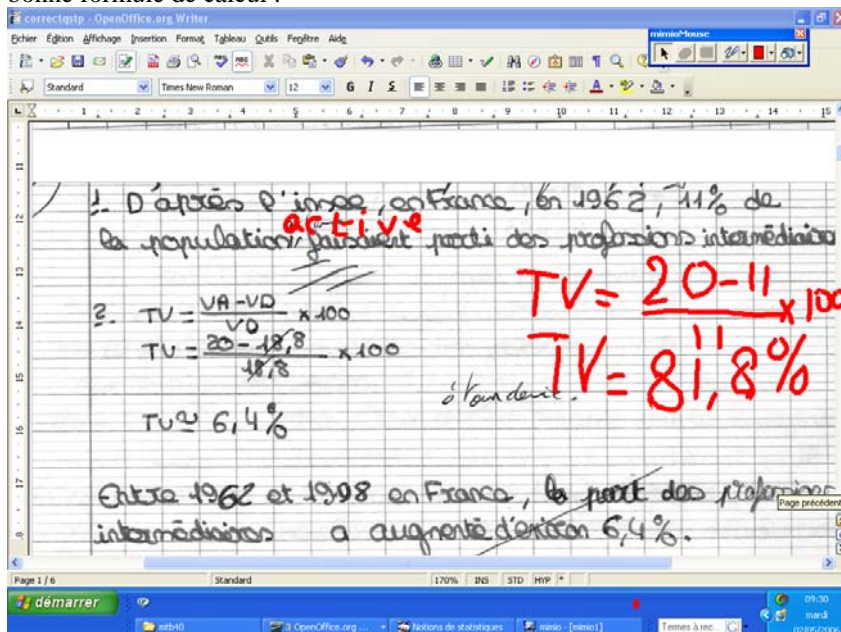 bonne formule de calcul :
correctqstp - OpenOffice.org Writer
Fichier Édition Affichage Insertion Format Tableau Outils Fenêtre Aide
mimioMouse
Standard Times New Roman 12 G I S
1 2 3 4 5 6 7 8 9 10 11 12 13 14 15
1. D'après l'insee, en France, en 1962, 11% de
active
la population faisaient parti des professions intermédiaires
2. TV = VA-VD / VD x 100
TV = 20-18,8 / 18,8 x 100
TV ≃ 6,4%
TV = 20-11 / 11 x 100
TV = 81,8%
Entre 1962 et 1998 en France, la part des professions
intermédiaires a augmenté d'environ 6,4%.
Page précédente
Page 1 / 6 Standard 170% INS STD HYP *
démarrer
09:30
mardi
02/05/2006
mtb40 3 OpenOffice.org ... Notions de statistiques mimio - [mimio1] Termes à rec...